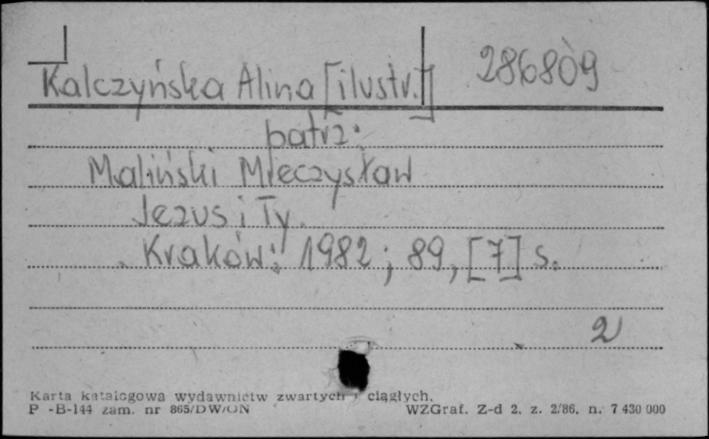 Kalczyńska Alina [ilustr.] 286809
patrz:
Maliński Mieczysław
Jezus i Ty.
Kraków: 1982; 89, [7] s.
2
Karta katalogowa wydawnictw zwartych i ciągłych.
P -B-144 zam. nr 865/DW/ON WZGraf. Z-d 2. z. 2/86. n. 7 430 000